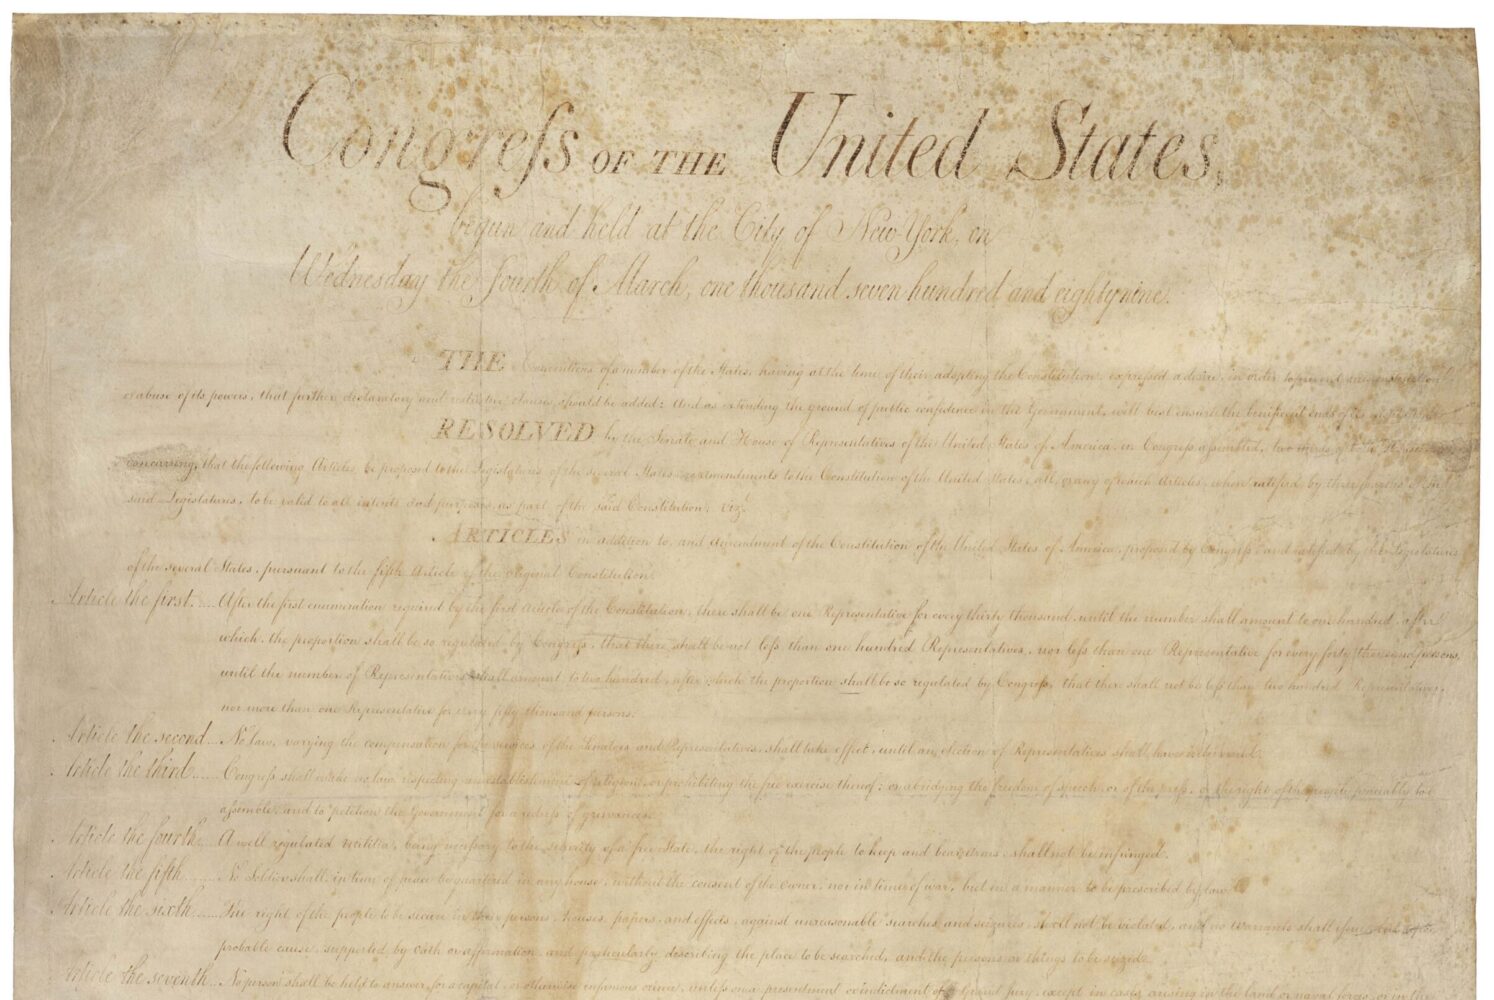 Congreſs OF THE United States,
begun and held at the City of New York, on
Wednesday the fourth of March, one thousand seven hundred and eighty nine.
THE Conventions of a number of the States, having at the time of their adopting the Constitution, expressed a desire, in order to prevent misconstruction
or abuse of its powers, that further declaratory and restrictive clauses should be added: And as extending the ground of public confidence in the Government, will best ensure the beneficent ends of its
RESOLVED by the Senate and House of Representatives of the United States of America, in Congreſs aſsembled, two thirds of both Houses
concurring, that the following Articles be proposed to the Legislatures of the several States, as amendments to the Constitution of the United States, all, or any of which Articles, when ratified by three fourths of the
said Legislatures, to be valid to all intents and purposes, as part of the said Constitution; viz.
ARTICLES in addition to, and Amendment of the Constitution of the United States of America, proposed by Congreſs, and ratified by the Legislatures
of the several States, pursuant to the fifth Article of the original Constitution.
Article the first..... After the first enumeration required by the first Article of the Constitution, there shall be one Representative for every thirty thousand, until the number shall amount to one hundred, after
which, the proportion shall be so regulated by Congreſs, that there shall be not leſs than one hundred Representatives, nor leſs than one Representative for every forty thousand persons,
until the number of Representatives shall amount to two hundred, after which the proportion shall be so regulated by Congreſs, that there shall not be leſs than two hundred Representatives,
nor more than one Representative for every fifty thousand persons.
Article the second... No law, varying the compensation for the services of the Senators and Representatives, shall take effect, until an election of Representatives shall have intervened.
Article the third...... Congreſs shall make no law respecting an establishment of religion, or prohibiting the free exercise thereof; or abridging the freedom of speech, or of the preſs, or the right of the people peaceably to
aſsemble, and to petition the Government for a redreſs of grievances.
Article the fourth.... A well regulated militia, being neceſsary to the security of a free State, the right of the people to keep and bear arms, shall not be infringed.
Article the fifth....... No Soldier shall, in time of peace be quartered in any house, without the consent of the owner, nor in time of war, but in a manner to be prescribed by law.
Article the sixth...... The right of the people to be secure in their persons, houses, papers, and effects, against unreasonable searches and seizures, shall not be violated, and no warrants shall iſsue, but upon
probable cause, supported by oath or affirmation, and particularly describing the place to be searched, and the persons or things to be seized.
Article the seventh.. No person shall be held to answer for a capital, or otherwise infamous crime, unleſs on a presentment or indictment of a grand jury, except in cases arising in the land or naval forces, or in the